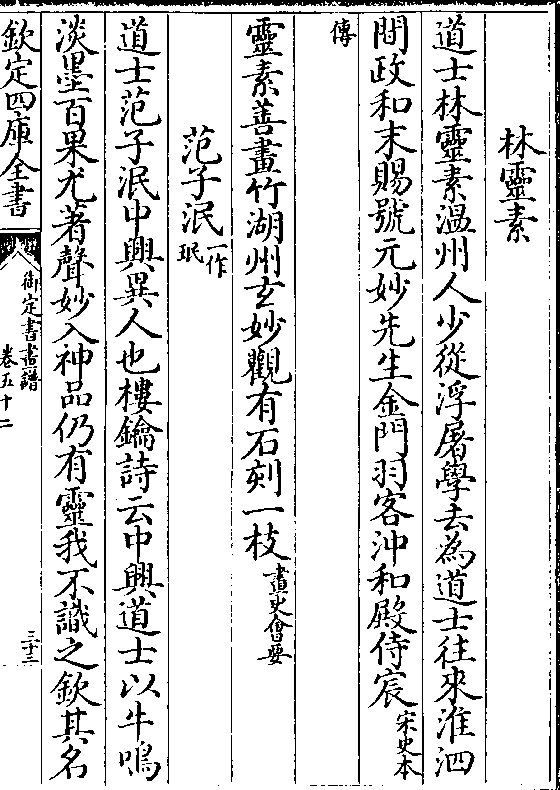 林靈素
道士林靈素温州人少從浮屠學去為道士往來淮泗
間政和末賜號元妙先生金門羽客沖和殿侍宸宋史本
傳
靈素善畫竹湖州玄妙觀有石刻一枝畫史會要
范子泯一作珉
道士范子泯中興異人也樓鑰詩云中興道士以牛鳴
淡墨百果尤著聲妙入神品仍有靈我不識之欽其名
欽定四庫全書
御定書畫譜
卷五十二
三十三